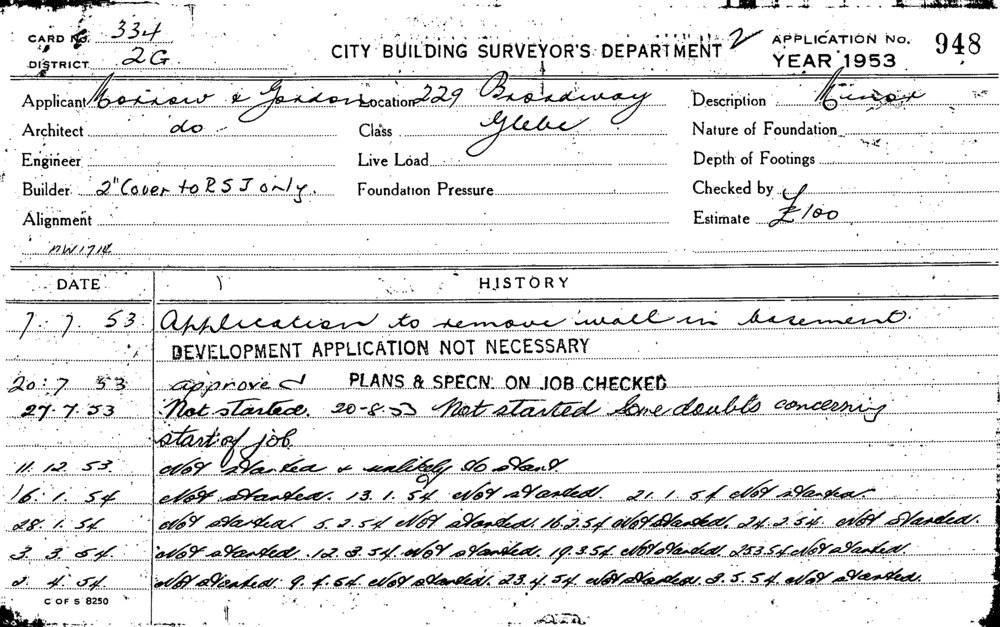 CARD No. 334
DISTRICT 2G
CITY BUILDING SURVEYOR'S DEPARTMENT 2
APPLICATION No. 948
YEAR 1953
Applicant Morrow & Gordon Location 229 Broadway Description Minor
Architect do Class Glebe Nature of Foundation
Engineer Live Load Depth of Footings
Builder 2" Cover to RSJ only. Foundation Pressure Checked by
Alignment Estimate £100
NW1714
DATE HISTORY
7. 7. 53 Application to remove wall in basement.
DEVELOPMENT APPLICATION NOT NECESSARY
20. 7 53 approved PLANS & SPECN. ON JOB CHECKED
27. 7. 53 Not started. 20-8-53 Not started Some doubts concerning
start of job
11. 12. 53. Not started & unlikely to start
16. 1. 54 Not started. 13. 1. 54 Not started. 21. 1. 54 Not started.
28. 1. 54 Not started 5. 2. 54 Not started. 16. 2. 54 Not started. 24. 2. 54. Not started.
3. 3. 54 Not started. 12. 3. 54. Not started. 19. 3 54 Not started. 25 3 54 Not started.
2. 4. 54 Not started. 9. 4. 54. Not started. 23. 4. 54 Not started. 3. 5. 54. Not started.
C OF S 8250